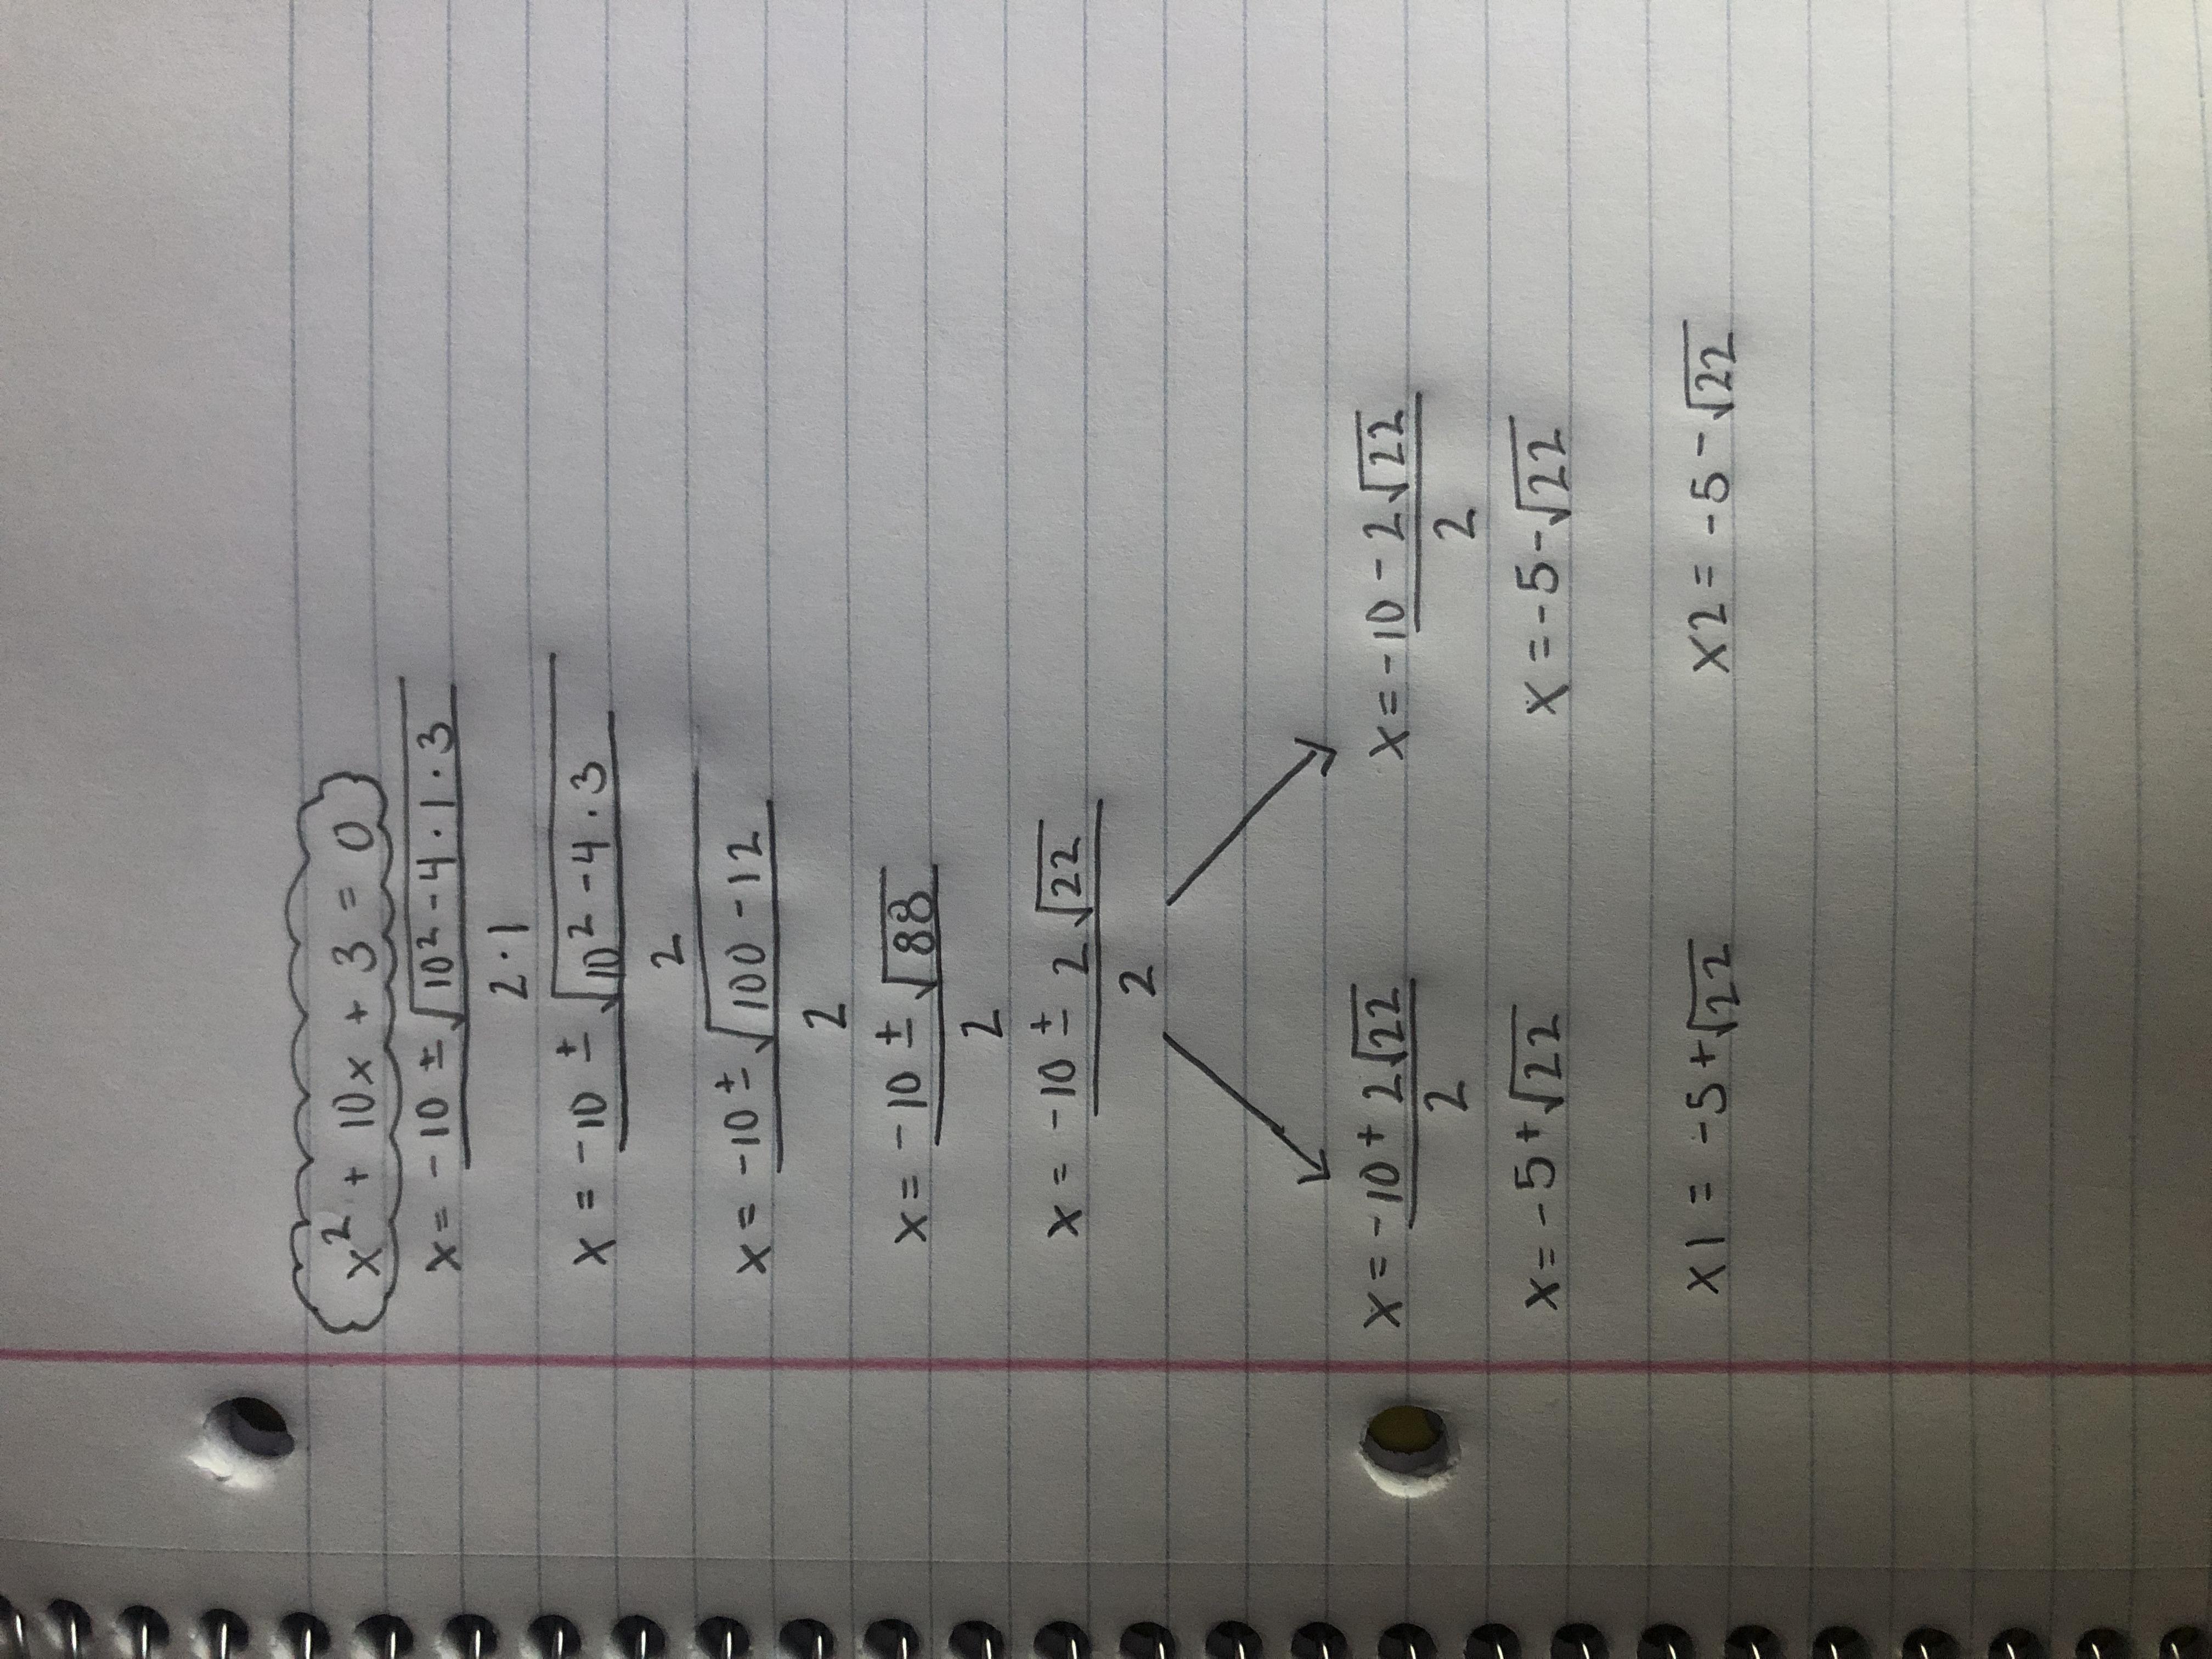 x² + 10x + 3 = 0
x = -10 ± √10² - 4 · 1 · 3
2 · 1
x = -10 ± √10² - 4 · 3
2
x = -10 ± √100 - 12
2
x = -10 ± √88
2
x = -10 ± 2√22
2
x = -10 + 2√22 x = -10 - 2√22
2 2
x = -5 + √22 x = -5 - √22
x1 = -5 + √22 x2 = -5 - √22